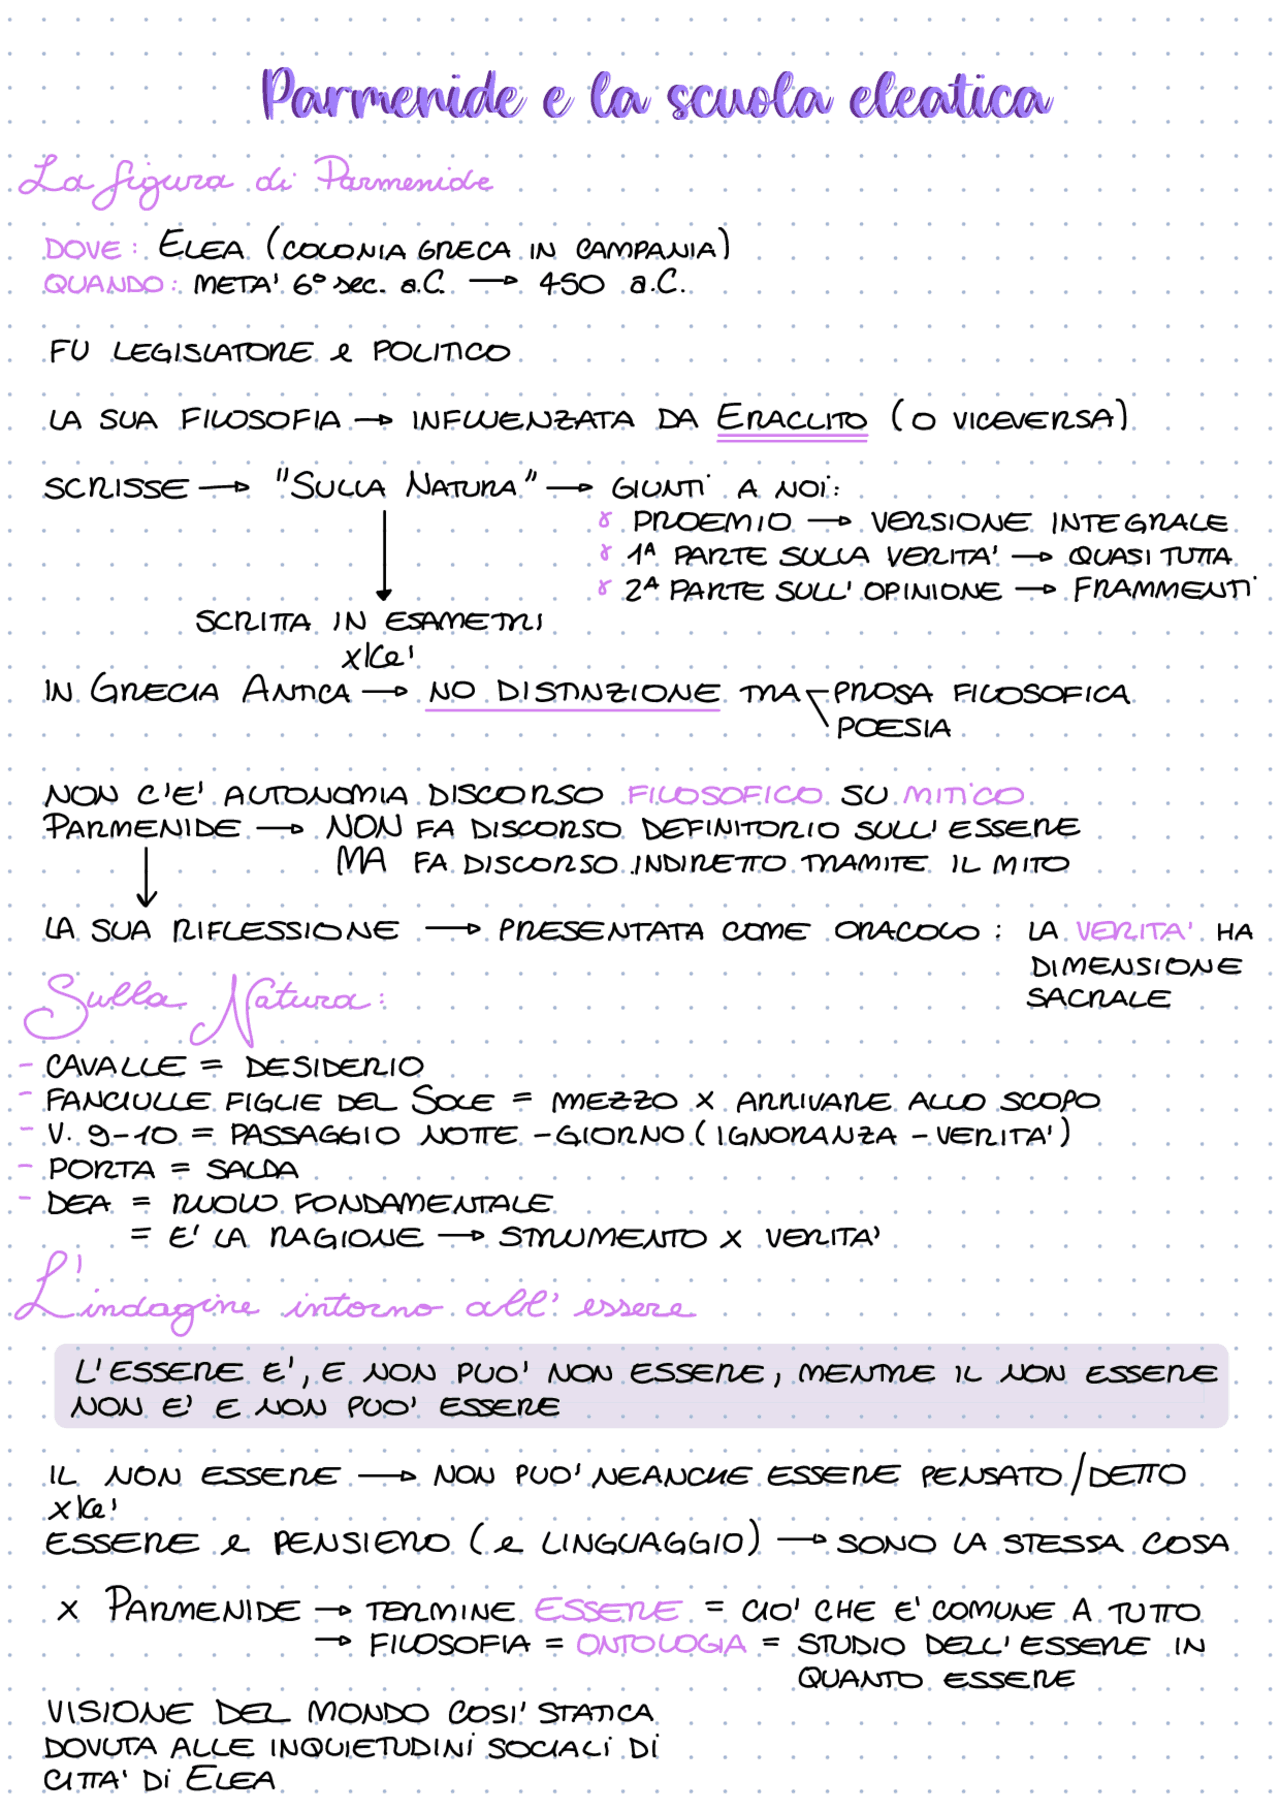 Parmenide e la scuola eleatica
La figura di Parmenide
DOVE: ELEA (COLONIA GRECA IN CAMPANIA)
QUANDO: META' 6° sec. a.C. → 450 a.C.
FU LEGISLATORE e POLITICO
LA SUA FILOSOFIA → INFLUENZATA DA ERACLITO (O VICEVERSA)
SCRISSE → "SULLA NATURA" → GIUNTI A NOI:
PROEMIO → VERSIONE INTEGRALE
1ᴬ PARTE SULLA VERITA' → QUASI TUTTA
2ᴬ PARTE SULL'OPINIONE → FRAMMENTI
SCRITTA IN ESAMETRI
xKe'
IN GRECIA ANTICA → NO DISTINZIONE TRA PROSA FILOSOFICA
POESIA
NON C'E' AUTONOMIA DISCORSO FILOSOFICO SU MITICO
PARMENIDE → NON FA DISCORSO DEFINITORIO SULL'ESSERE
MA FA DISCORSO INDIRETTO TRAMITE IL MITO
LA SUA RIFLESSIONE → PRESENTATA COME ORACOLO: LA VERITA' HA
DIMENSIONE
SACRALE
Sulla Natura:
- CAVALLE = DESIDERIO
- FANCIULLE FIGLIE DEL SOLE = MEZZO X ARRIVARE ALLO SCOPO
- V. 9-10 = PASSAGGIO NOTTE - GIORNO (IGNORANZA - VERITA')
- PORTA = SALDA
- DEA = RUOLO FONDAMENTALE
= E' LA RAGIONE → STRUMENTO X VERITA'
L'indagine intorno all'essere
L'ESSERE E', E NON PUO' NON ESSERE, MENTRE IL NON ESSERE
NON E' E NON PUO' ESSERE
IL NON ESSERE → NON PUO' NEANCHE ESSERE PENSATO/DETTO
xKe'
ESSERE e PENSIERO (e LINGUAGGIO) → SONO LA STESSA COSA
X PARMENIDE → TERMINE ESSERE = CIO' CHE E' COMUNE A TUTTO
→ FILOSOFIA = ONTOLOGIA = STUDIO DELL'ESSERE IN
QUANTO ESSERE
VISIONE DEL MONDO COSI' STATICA
DOVUTA ALLE INQUIETUDINI SOCIALI DI
CITTA' DI ELEA